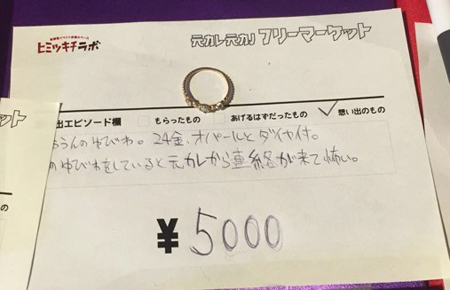 ヒミツキチラボ
元カレ元カノ フリーマーケット
出エピソード欄 もらったもの あげるはずだったもの 想い出のもの
うんのゆびわ。24金、オパールとダイヤ付。
のゆびわをしていると元カレから連絡が来て怖い。
¥5000
ット
の